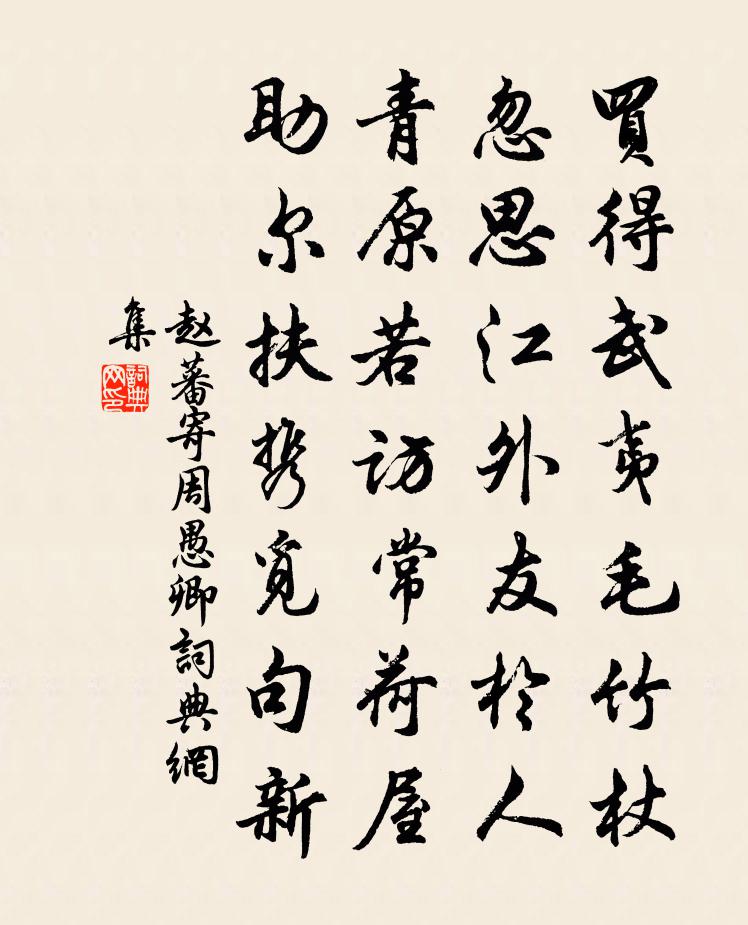 買得武夷毛竹杖
忽思江外友於人
青原若访常荷屋
助尔扶携觅句新
赵蕃寄周愚卿詞典網
集
詞典
网印